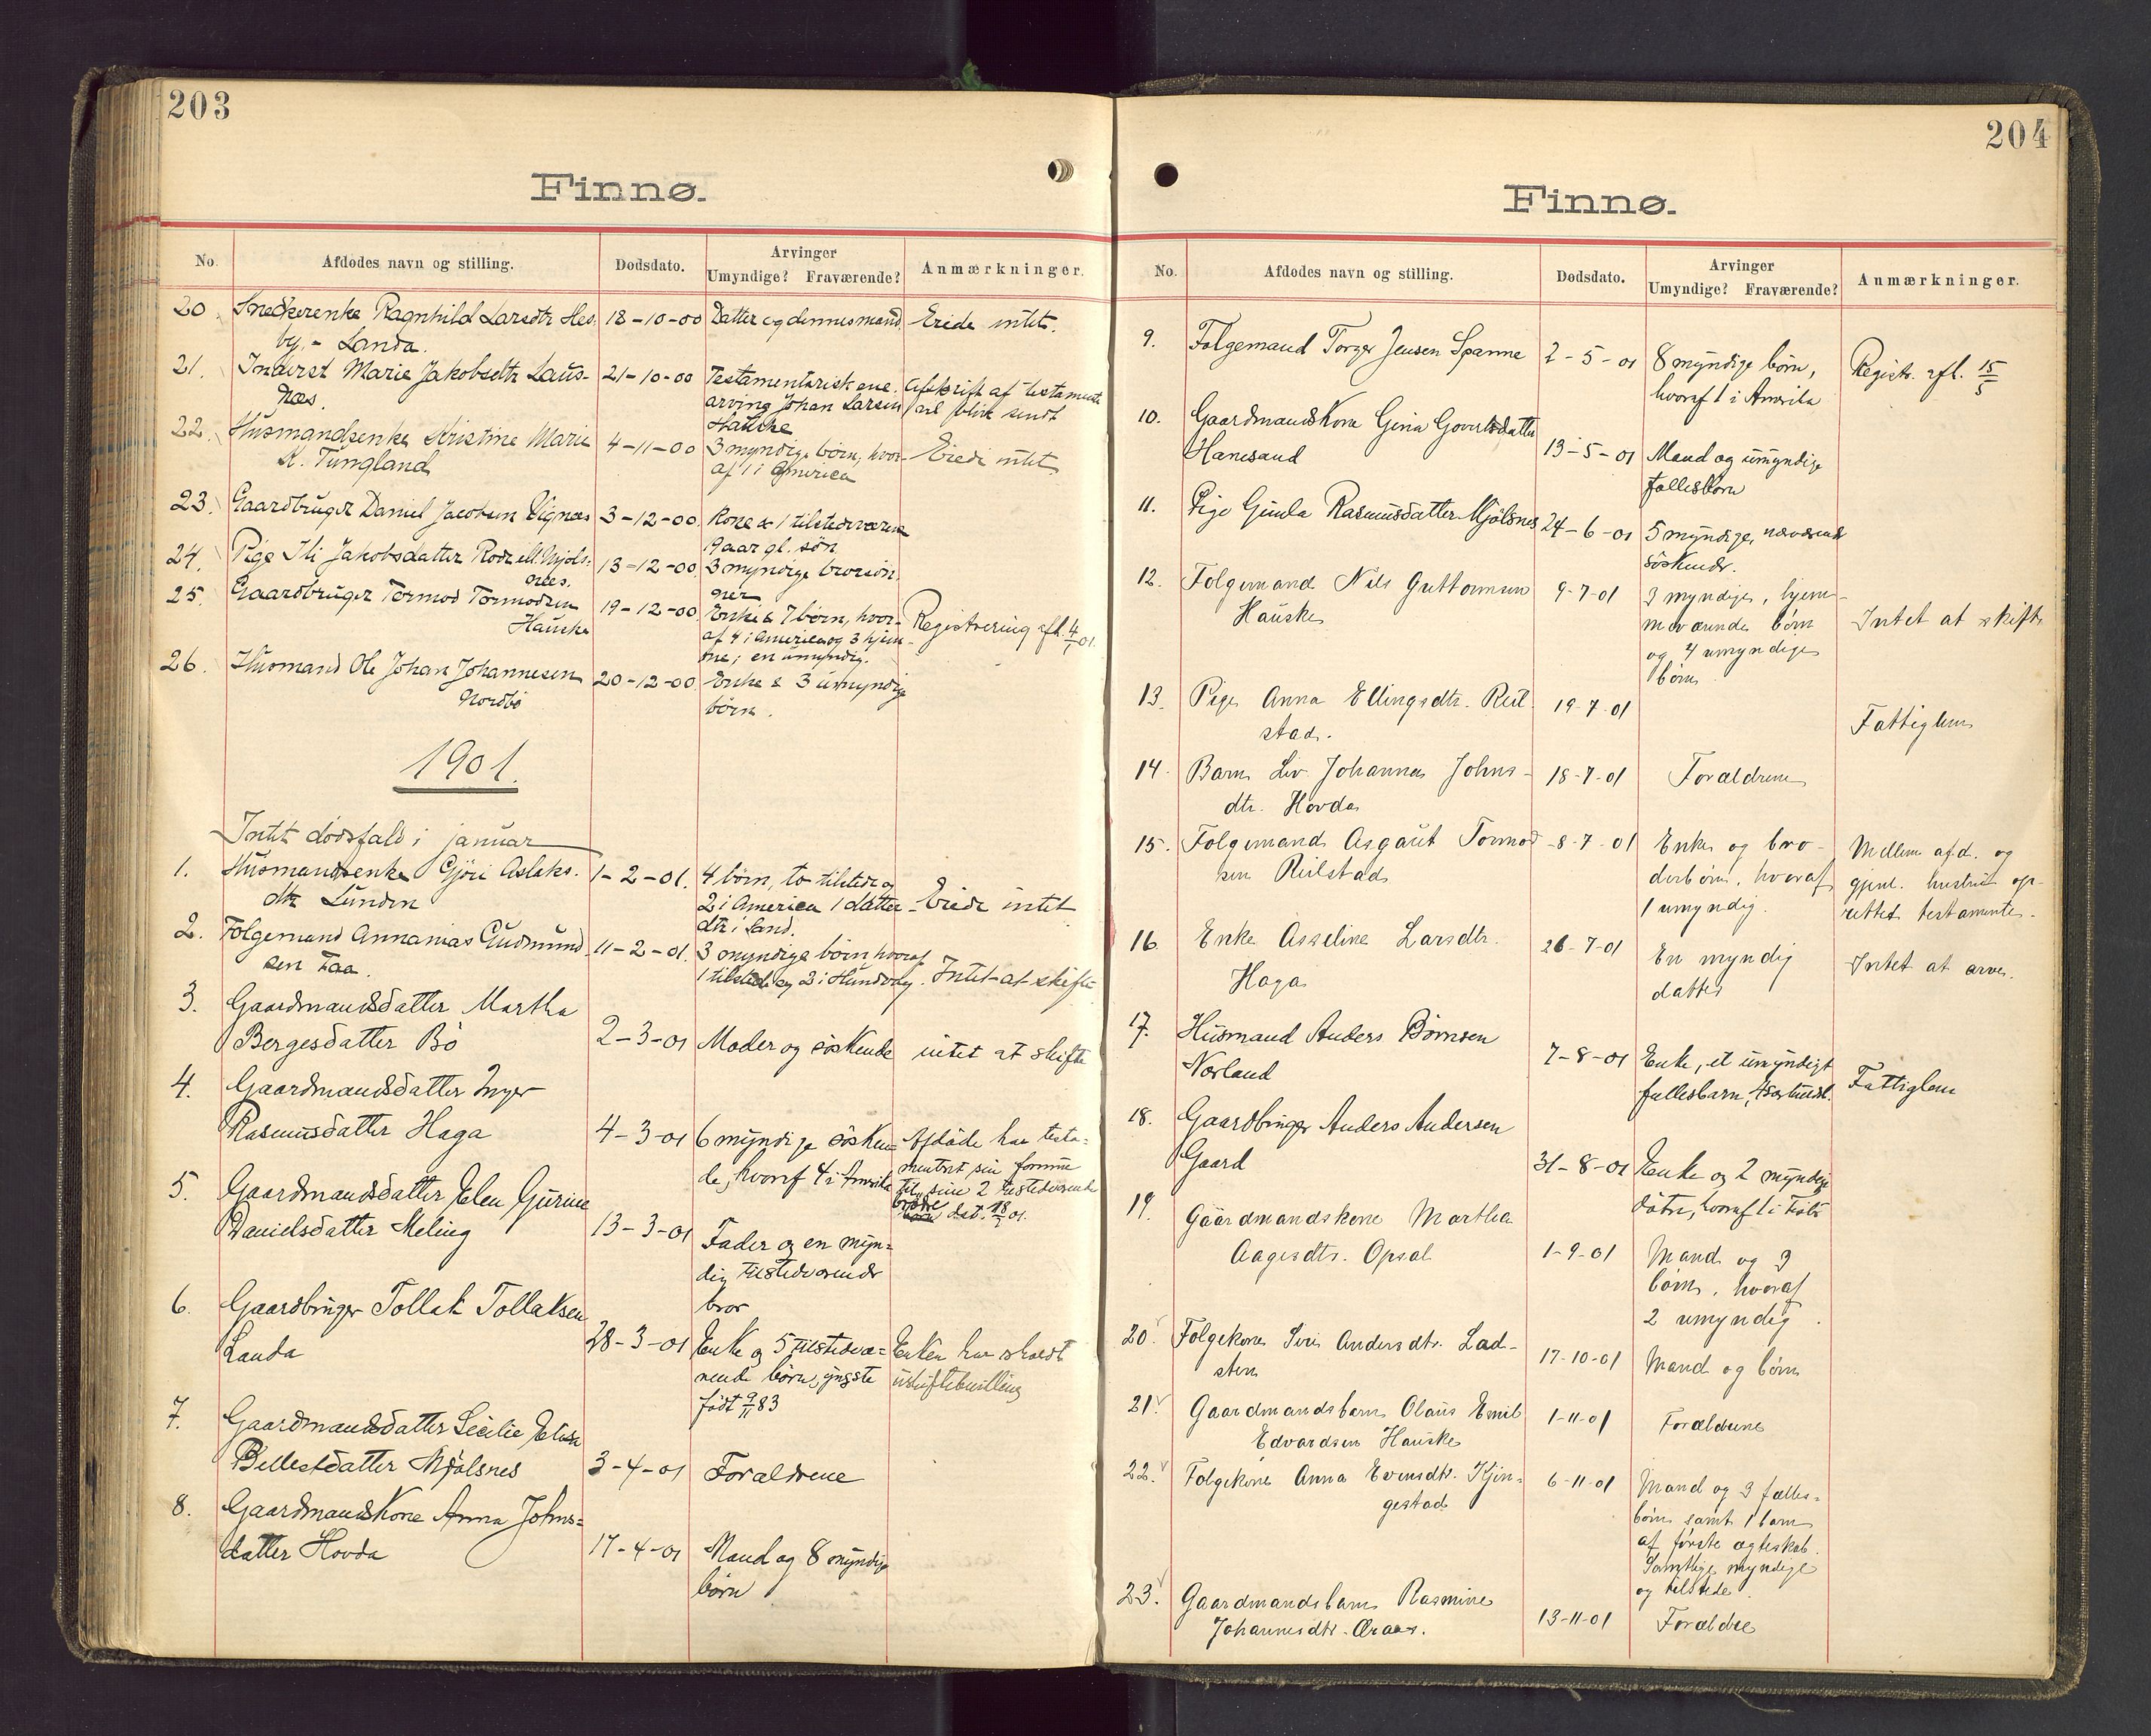 203
Finnø.
No. Afdødes navn og stilling. Dødsdato. Arvinger Anmærkninger.
Umyndige? Fraværende?
20. Snedkerenke Ragnhild Larsdtr Hes- 18-10-00 Datter og dennes mand Eiede intet.
by. - Landa.
21. Inderst Marie Jakobsdtr Laus- 21-10-00 Testamentarisk ene- Afskrift af testamente
næs. arving Johan Larsen vil blive sendt
Hauske
22. Husmandsenke Kristine Marie 4-11-00 3 myndige børn, hvor- Eiede intet
K. Tungland af 1 i America
23. Gaardbruger Daniel Jacobsen Vignæs 3-12-00. Kone & 1 tilstedeværen
9 aar gl. søn
24. Pige Ili Jakobsdatter Mjøls- 13-12-00 3 myndige brorsøn-
næs. ner
25. Gaardbruger Tormod Tormodsen 19-12-00 Enke & 7 børn, hvor- Registrering afh. 4/1 01.
Hauske af 4 i America og 3 hjem-
me; en umyndig.
26. Husmand Ole Johan Johannesen 20-12-00 Enke & 3 umyndige
Nordbø børn.
1901.
Intet dødsfald i januar
1. Husmandsenke Gjøri Aslaks- 1-2-01. 4 børn, to tilstede og
dtr Lunden 2 i America 1 datter- Eiede intet
dtr i Land.
2. Folgemand Annanias Gudmund 11-2-01. 3 myndige børn, hvoraf
sen Faa. 1 tilstede og 2 i Hundvåg. Intet at skifte
3. Gaardmandsdatter Martha
Bergesdatter Bø 2-3-01 Moder og søskende intet at skifte
4. Gaardmandsdatter Inger
Rasmusdatter Haga 4-3-01 6 myndige søsken- Afdøde har testa-
de, hvoraf 4 i Amerika mentert sin formue
til sine 2 tilstedeværende
brødre dat. 18/1 01.
5. Gaardmandsdatter Elen Gurine
Danielsdatter Meling 13-3-01 Fader og en myn-
dig tilstedeværende
bror
6. Gaardbruger Tollak Tollaksen
Landa 28-3-01 Enke og 5 tilstedevæ- Enken har
rende børn, yngste uskiftebevilling
født 9/11 83
7. Gaardmandsdatter Secilie Elise
Bellestdatter Mjølsnes 3-4-01 Forældrene
8. Gaardmandskone Anna Johns-
datter Hovda 17-4-01 Mand og 8 myndige
børn
204
Finnø.
No. Afdødes navn og stilling. Dødsdato. Arvinger Anmærkninger.
Umyndige? Fraværende?
9. Folgemand Torger Jensen Spanne 2-5-01 8 myndige børn, Registr. afh. 15/5
hvoraf 1 i Amerika
10. Gaardmandskone Gina Govertsdatter
Hanesand 13-5-01 Mand og umyndige
fællesbørn
11. Pige Gunla Rasmusdatter Mjølsnes 24-6-01 5 myndige, nærværende
søskende.
12. Folgemand Nils Guttormsen 9-7-01 3 myndige, hjem-
Hauske meværende børn Intet at skifte
og 4 umyndige
børn
13. Pige Anna Ellingsdtr. Reil- 19-7-01
stad. Fattiglem
14. Barn Liv Johanna Johns- 18-7-01 Forældrene
dtr. Hovda
15. Folgemand Asgaut Tormod- 8-7-01 Enke og bro- Mellem afd. og
sen Reilstad derbørn, hvoraf gjenl. hustru op-
1 umyndig. rettet testamente.
16. Enke Asseline Larsdtr. 26-7-01 En myndig Intet at arve.
Haga datter
17. Husmand Anders Bjørnsen
Nørland 7-8-01 Enke, et umyndigt Fattiglem
fællesbarn,
18. Gaardbruger Anders Andersen
Gaard 31-8-01 Enke og 2 myndige
døtre, hvoraf 1 i
19. Gaardmandskone Martha
Aagesdtr. Opsal 1-9-01 Mand og 3
børn, hvoraf
2 umyndig.
20. Folgekone Siri Andersdtr. Lad-
sten 17-10-01 Mand og børn
21. Gaardmandsbarn Olaus Emil 1-11-01 Forældrene
Edvardsen Hauske
22. Folgekone Anna Evensdtr. Kjin- 6-11-01 Mand og 3 fælles-
gestad børn samt 1 barn
af første ægteskab.
Samtlige myndige
og tilstede
23. Gaardmandsbarn Rasmine
Johannesdtr. Aaraas. 13-11-01 Forældre